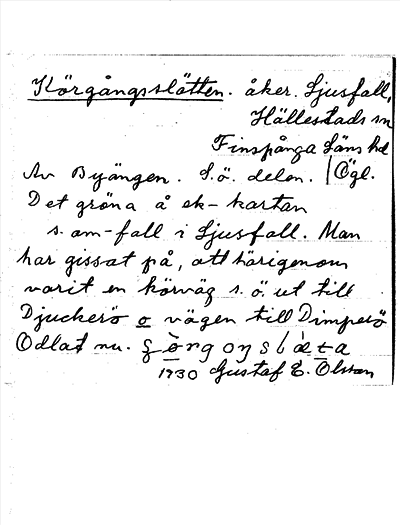 Körgångsslätten. åker. Ljusfall,
Hällestads sn
Finspånga Läns hd
Av Byängen. S.ö. delen. | Ögl.
Det gröna å ek-kartan
s. om-fall i Ljusfall. Man
har gissat på, att härigenom
varit en körväg s. ö. ut till
Djuckerö o vägen till Dimperö
Odlat nu.
1930 Gustaf E. Olsson